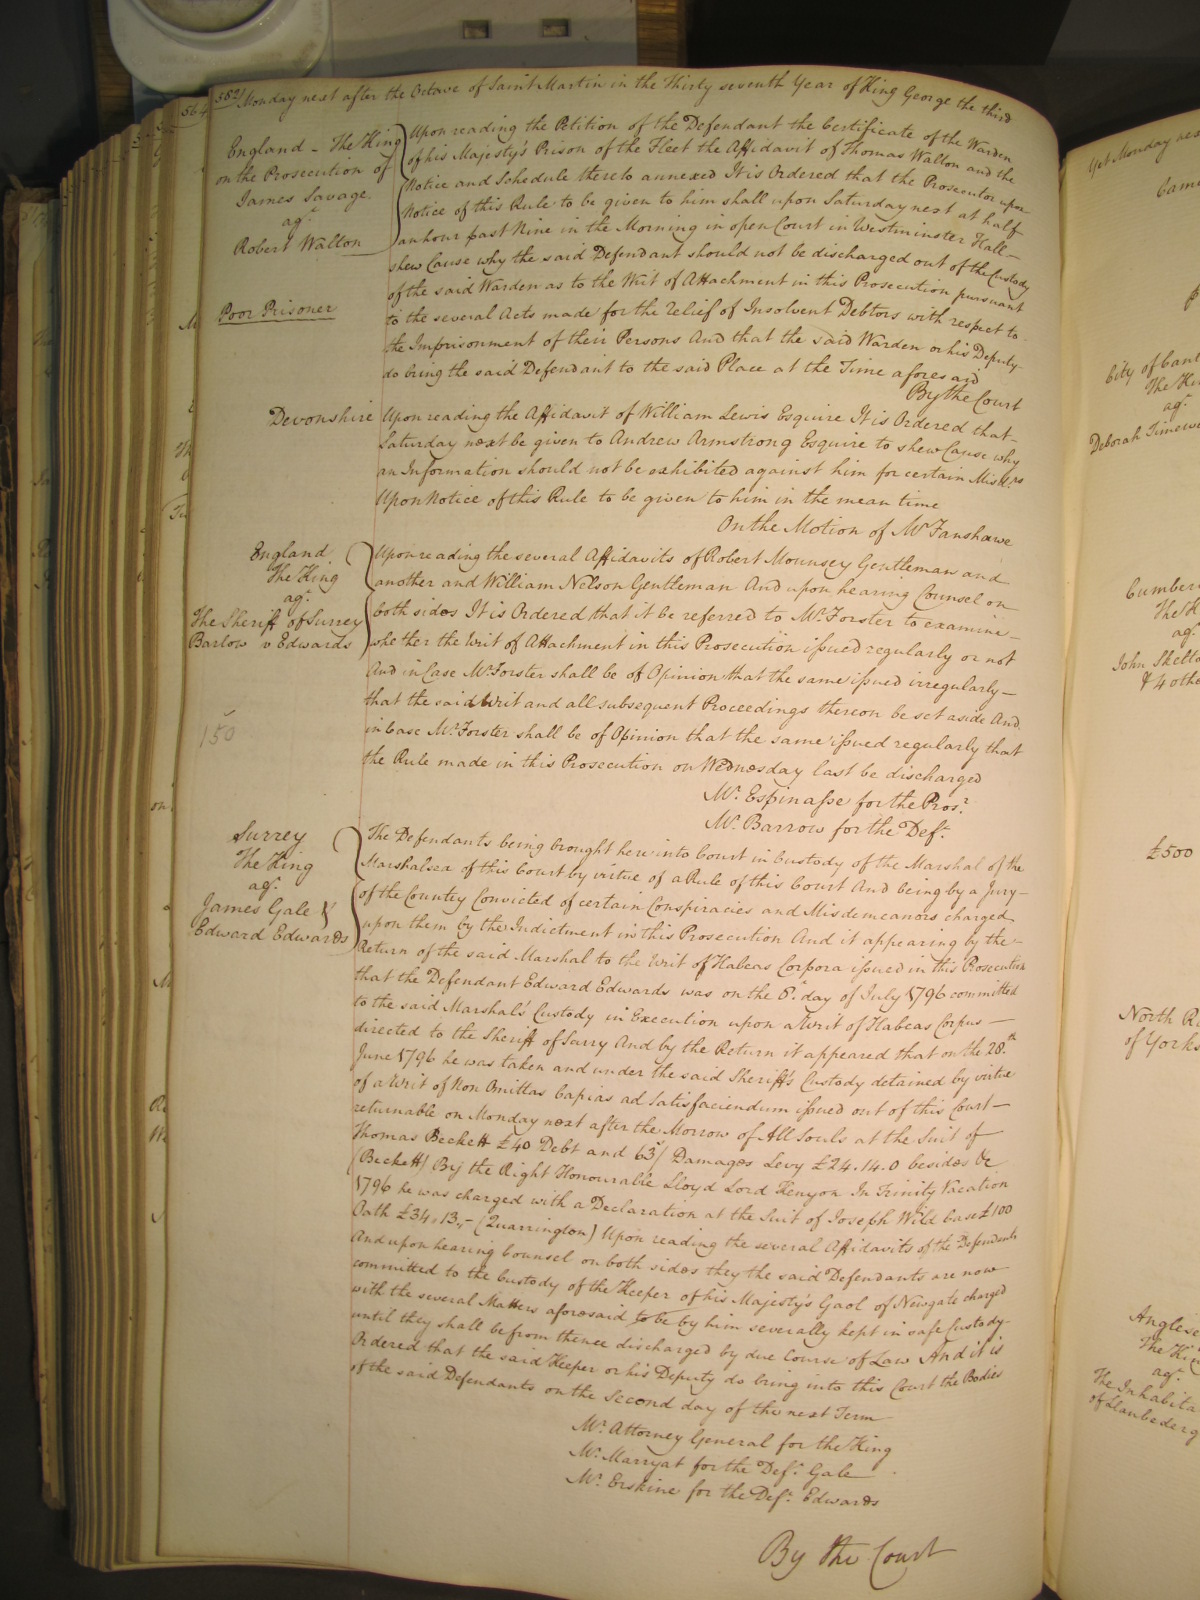 582 Monday next after the Octave of Saint Martin in the Thirty seventh Year of King George the third
England - The King
on the Prosecution of
James Savage
agt.
Robert Walton
Poor Prisoner
Upon reading the Petition of the Defendant the Certificate of the Warden
of his Majesty's Prison of the Fleet the Affidavit of Thomas Walton and the
Notice and Schedule thereto annexed It is Ordered that the Prosecutor upon
Notice of this Rule to be given to him shall upon Saturday next at half
an hour past Nine in the Morning in open Court in Westminster Hall -
shew Cause why the said Defendant should not be discharged out of the Custody
of the said Warden as to the Writ of Attachment in this Prosecution pursuant
to the several Acts made for the relief of Insolvent Debtors with respect to
the Imprisonment of their Persons And that the said Warden or his Deputy
do bring the said Defendant to the said Place at the Time aforesaid
By the Court
Devonshire
Upon reading the Affidavit of William Lewis Esquire It is Ordered that -
Saturday next be given to Andrew Armstrong Esquire to shew Cause why
an Information should not be exhibited against him for certain Misdrs
Upon Notice of this Rule to be given to him in the mean time
On the Motion of Mr. Fanshawe
England
The King
agt.
The Sheriff of Surrey
Barlow v Edwards
Upon reading the several Affidavits of Robert Mounsey Gentleman and
another and William Nelson Gentleman And upon hearing Counsel on
both sides It is Ordered that it be referred to Mr. Forster to examine -
whether the Writ of Attachment in this Prosecution issued regularly or not
And in Case Mr. Forster shall be of Opinion that the same issued irregularly -
that the said Writ and all subsequent Proceedings thereon be set aside And
in Case Mr. Forster shall be of Opinion that the same issued regularly that
the Rule made in this Prosecution on Wednesday last be discharged
150
Mr. Espinasse for the Prosr.
Mr. Barrow for the Deft.
Surrey
The King
agt.
James Gale &
Edward Edwards
The Defendants being brought here into Court in Custody of the Marshal of the
Marshalsea of this Court by virtue of a Rule of this Court And being by a Jury -
of the Country Convicted of certain Conspiracies and Misdemeanors charged
upon them by the Indictment in this Prosecution And it appearing by the -
Return of the said Marshal to the Writ of Habeas Corpora issued in this Prosecution
that the Defendant Edward Edwards was on the 8th. day of July 1796 committed
to the said Marshal's Custody in Execution upon a Writ of Habeas Corpus -
directed to the Sheriff of Surry And by the Return it appeared that on the 28th.
June 1796 he was taken and under the said Sheriff's Custody detained by virtue
of a Writ of Non Omittas Capias ad Satisfaciendum issued out of this Court -
returnable on Monday next after the Morrow of All Souls at the Suit of
Thomas Beckett £40 Debt and 63s/ Damages Levy £24.14.0 besides &c
(Beckett) By the Right Honourable Lloyd Lord Kenyon In Trinity Vacation
1796 he was charged with a Declaration at the Suit of Joseph Wild Case £100
Oath £34,13,- (Quarrington) Upon reading the several Affidavits of the Defendants
And upon hearing Counsel on both sides they the said Defendants are now
committed to the Custody of the Keeper of his Majesty's Gaol of Newgate charged
with the several Matters aforesaid to be by him severally kept in safe Custody
until they shall be from thence discharged by due Course of Law And it is
Ordered that the said Keeper or his Deputy do bring into this Court the Bodies
of the said Defendants on the Second day of the next Term
Mr. Attorney General for the King
Mr. Marryat for the Deft. Gale
Mr. Erskine for the Deft. Edwards
By the Court
564
Yet Monday
City of Cant
The Ki
agt.
Deborah
Cumber
The K
agt.
John
& 4 othe
£500
North R
of Yorks
Anglese
The Kin
agt.
The Inhabita
of Llanbederg